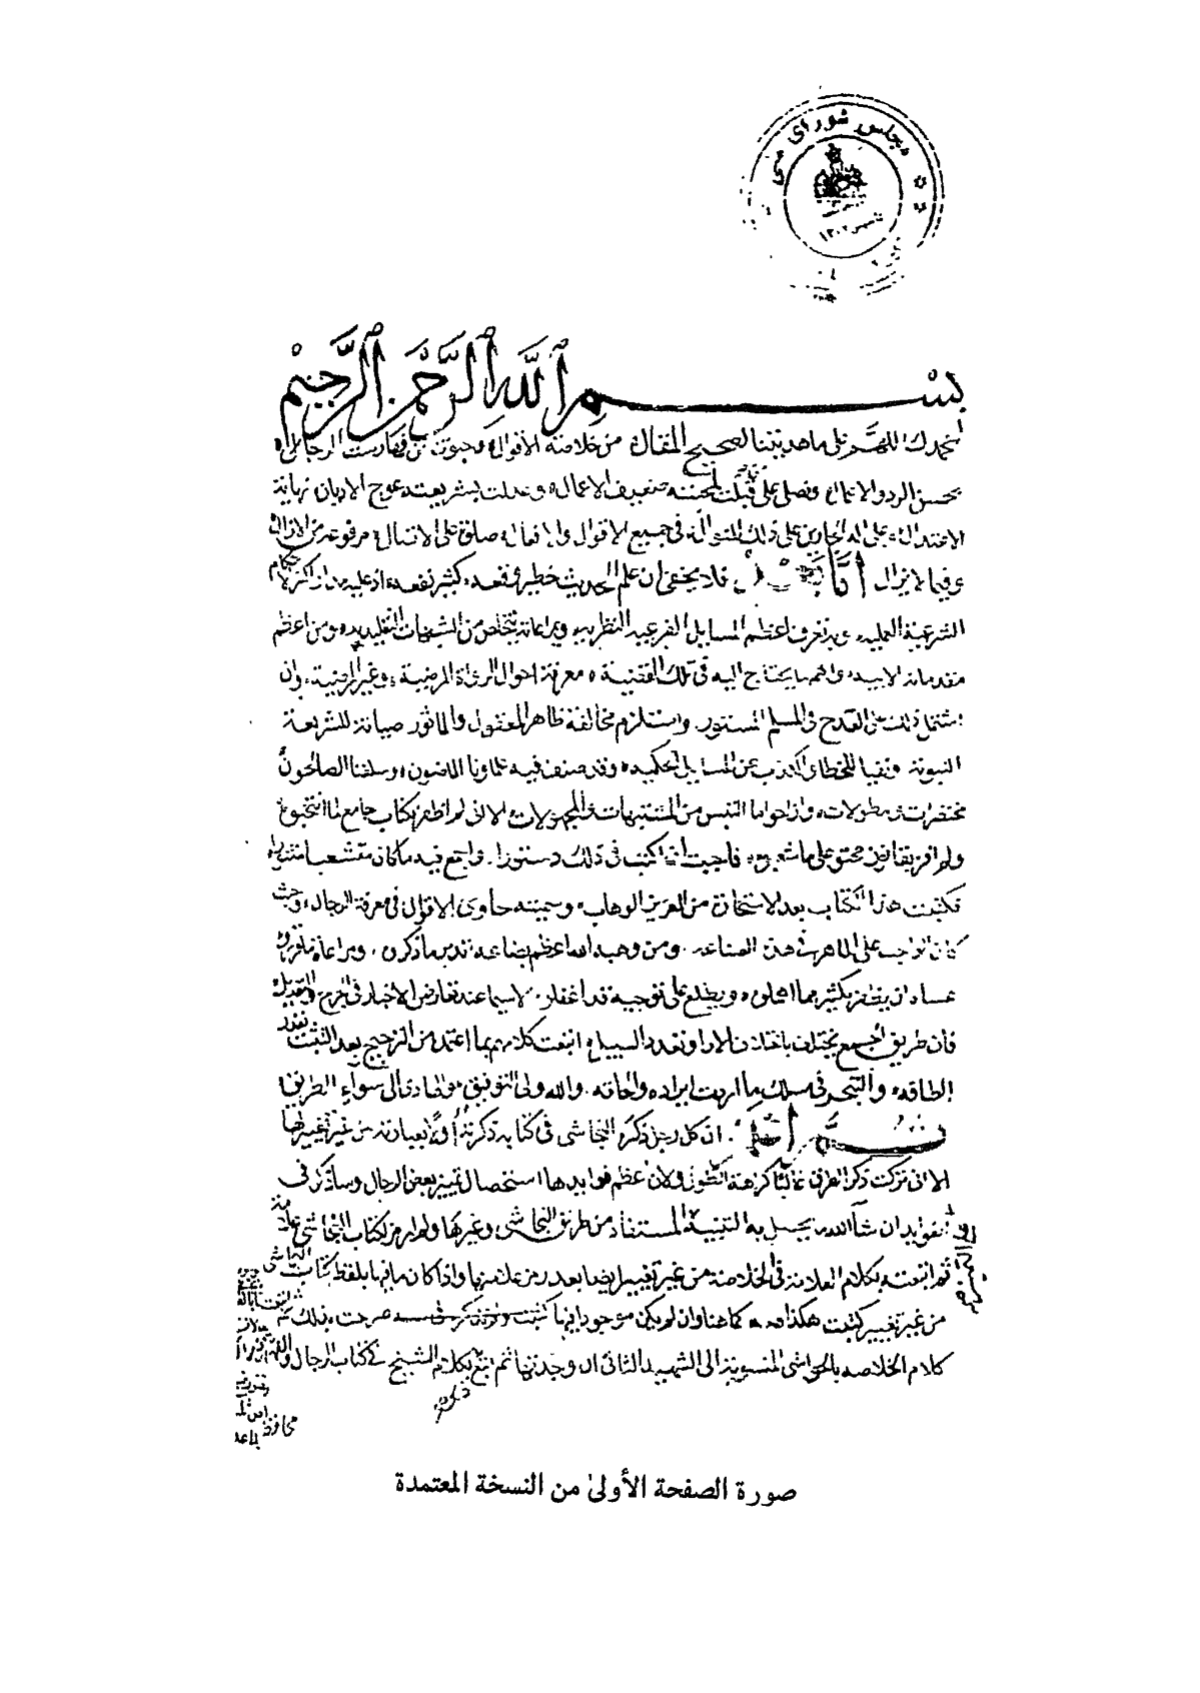 مجلس شورای ملی
تأسیس ۱۳۰۲
بسم الله الرحمن الرحيم
نحمدك اللهم على ما هديتنا لصحيح المقال من خلاصة الاقوال وحبوتنا من فهارست الرجال
بحسن الرد و ونصلي على بمحبته ضعيف الاعمال وعدلت بشريعته عوج الاديان نهاية
الاعتدال وعلى اله الجارين على ذلك المنوال في جميع الاقوال والافعال صلوة على الاتصال مرفوعة من الان
وفيما لا يزال اما بعد فلا يخفى ان علم الحديث خطير وقعه كثير نفعه اذ عليه مدار اكثر الاحكام
الشرعية العملية وبه تعرف اعظم المسايل الفرعية النظرية وبمراعاته يتخلص من الشبهات التقليدية ومن اعظم
مقدماته واهم ما يحتاج اليه في تلك القضية معرفة احوال الرواة المرضية وغير المرضية وان
اشتمل ذلك على القدح في المسلم المستور واستلزم مخالفة ظاهر المعقول والماثور صيانة للشريعة
النبوية ونفيا للخطا والكذب عن المسايل الحكمية وقد صنف فيه علماونا الماضون وسلفنا الصالحون
مختصرات ومطولات وازاحوا ما التبس من المشتبهات والمجهولات الا اني لم اظفر بكتاب جامع لما انتخبوه
ولم افز بقانون محتو على ما فاحببت ان اكتب في ذلك دستورا واجمع فيه ما كان متشعبا منثورا
فكتبت هذا الكتاب بعد الاستخارة من العزيز الوهاب وسميته حاوي الاقوال في معرفة الرجال وحيث
كان الواجب على الماهر في هذه الصناعة ومن وهبه الله اعظم بضاعة تدبر ما ذكروه ومراعاة ما قرروه
عساه ان يظفر بكثير مما اهملوه ويطلع على توجيه قد اغفلوه لا سيما عند تعارض الاخبار في الجرح والتعديل
فان طريق الجمع يختلف باختلاف الارا وتعدد السبيل اتبعت كلامهم بما اعتمد من الترجيح بعد التثبت بقدر
الطاقة والتبحر في مسلك ما اردت ايراده والحاقه والله ولي التوفيق والهادي الى سواء الطريق
ثم اعلم ان كل رجل ذكره النجاشي في كتابه ذكرته اولا بعبارته من غير تغيير لها
الا اني تركت ذكر الطرق غالبا كراهة التطويل ولان اعظم فوايدها استحصال تمييز بعض الرجال وساذكر في
الفوايد ان شاء الله ما يحصل به التنبيه المستفاد من طريق النجاشي وغيرها ولم ارمز لكتاب النجاشي علامة
ثم اتبعته بكلام العلامة في الخلاصة من غير تغيير ايضا بعد رمز علامتها واذا كان ما فيها بلفظ كتاب النجاشي
من غير تغيير كتبت هكذا صه كما هنا وان لم يكن موجودا فيها صرحت بذلك ثم
كلام الخلاصه بالحواشي المنسوبة الى الشهيد الثاني ان وجدتها ثم اتبع بكلام الشيخ في كتاب الرجال
صورة الصفحة الأولى من النسخة المعتمدة